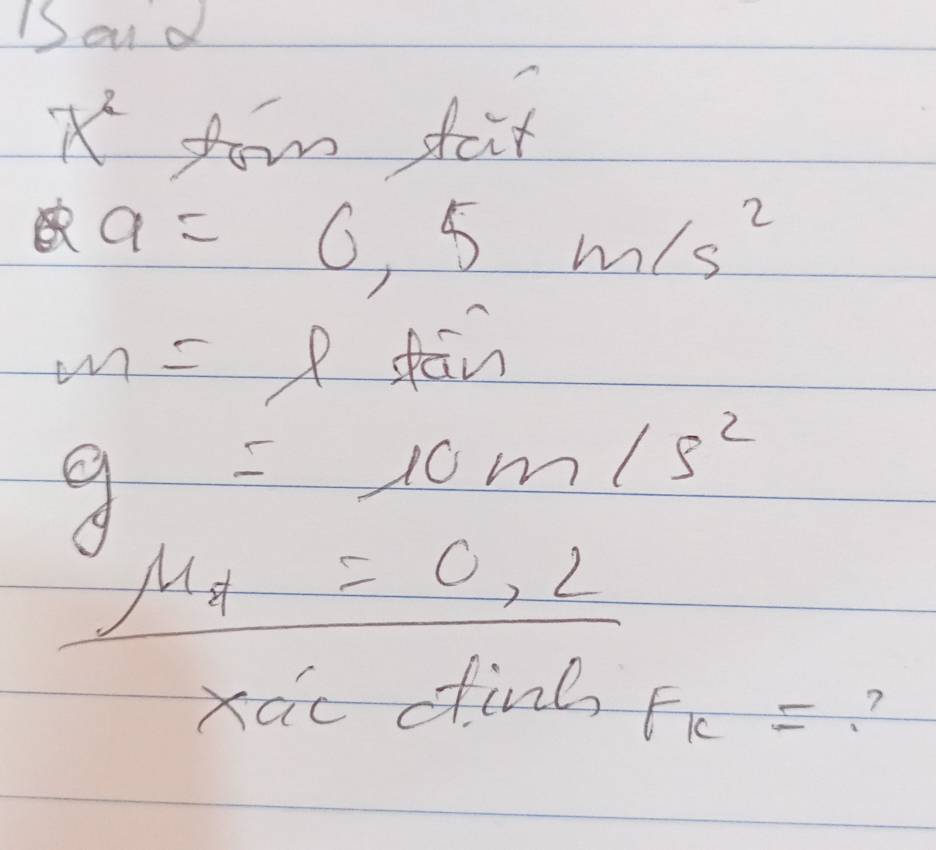 Bài 2
tóm tắt
a = 0,5 m/s²
m = 1 tấn
g = 10 m/s²
μt = 0,2
xác định Fk = ?